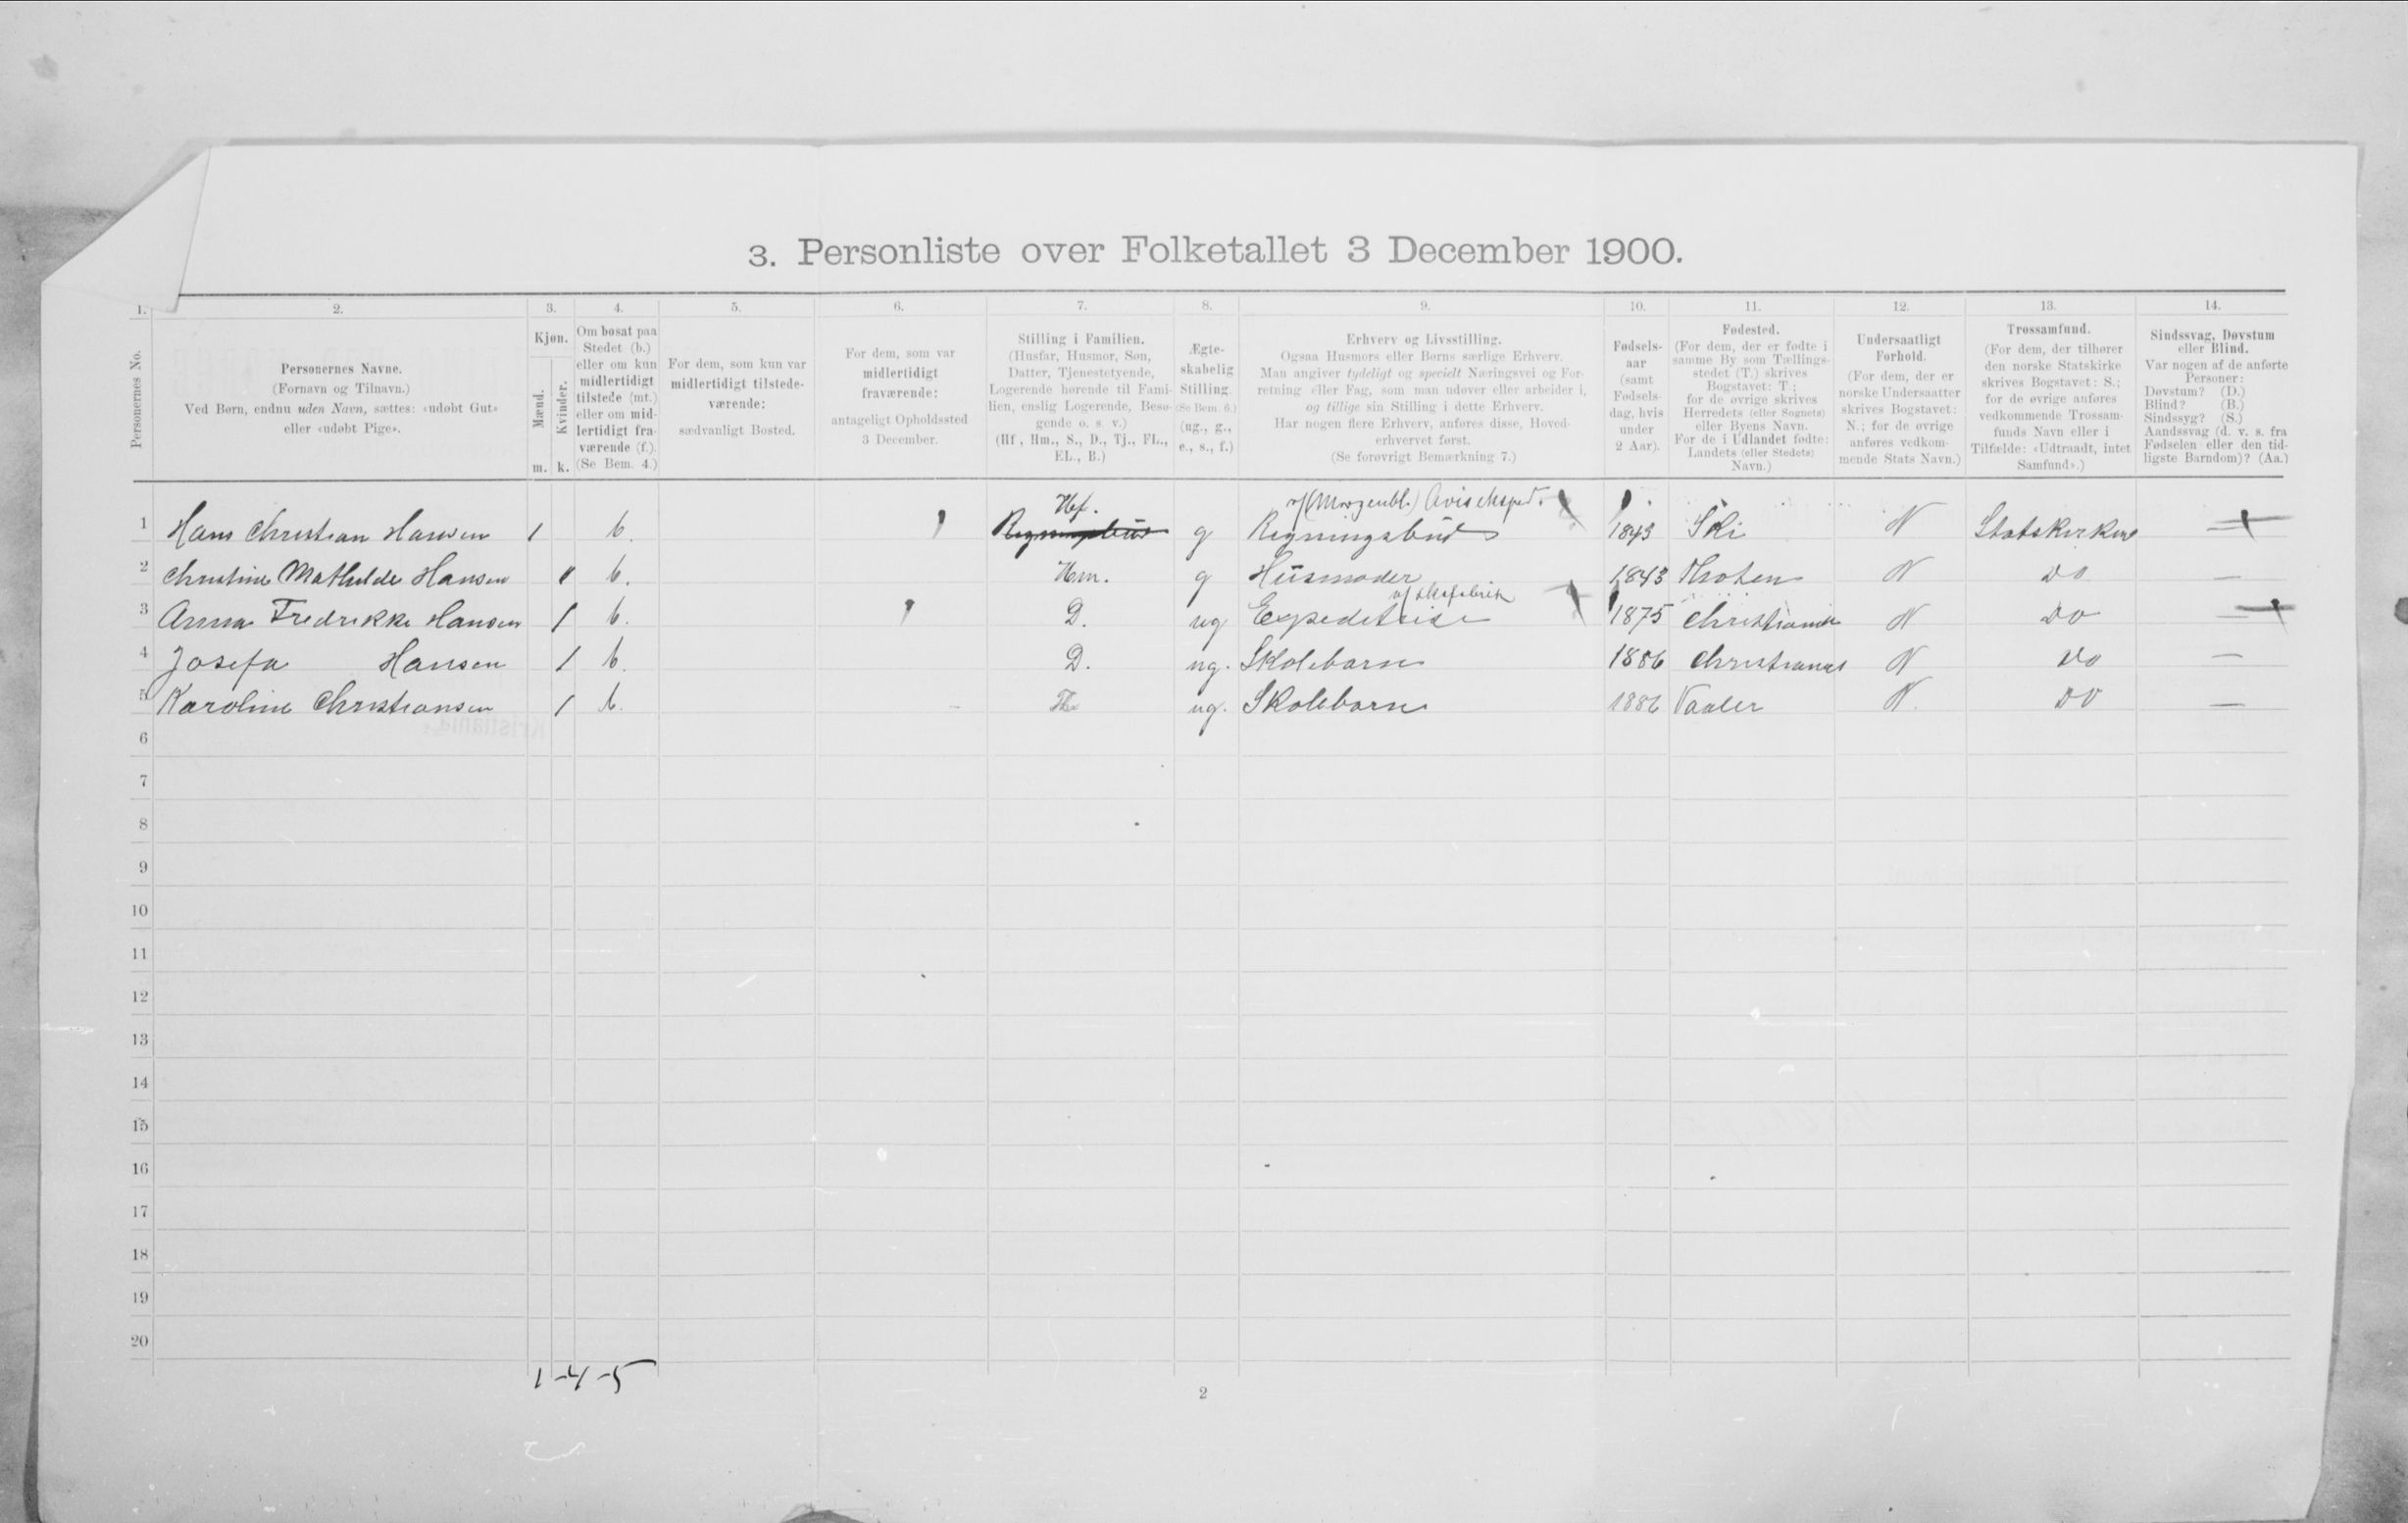 3. Personliste over Folketallet 3 December 1900.
1. 2. 3. 4. 5. 6. 7. 8. 9. 10. 11. 12. 13. 14.
Personernes No.
Personernes Navne.
(Fornavn og Tilnavn.)
Ved Børn, endnu uden Navn, sættes: «udøbt Gut»
eller «udøbt Pige».
Kjøn.
Mænd.
Kvinder.
m. k.
Om bosat paa
Stedet (b.)
eller om kun
midlertidigt
tilstede (mt.)
eller om mid-
lertidigt fra-
værende (f.).
(Se Bem. 4.)
For dem, som kun var
midlertidigt tilstede-
værende:
sædvanligt Bosted.
For dem, som var
midlertidigt
fraværende:
antageligt Opholdssted
3 December.
Stilling i Familien.
(Husfar, Husmor, Søn,
Datter, Tjenestetyende,
Logerende hørende til Fami-
lien, enslig Logerende, Besø-
gende o. s. v.)
(Hf., Hm., S., D., Tj., FL.,
EL., B.)
Ægte-
skabelig
Stilling.
(Se Bem. 6.)
(ug., g.,
e., s., f.)
Erhverv og Livsstilling.
Ogsaa Husmors eller Børns særlige Erhverv.
Man angiver tydeligt og specielt Næringsvei og For-
retning eller Fag, som man udøver eller arbeider i,
og tillige sin Stilling i dette Erhverv.
Har nogen flere Erhverv, anføres disse, Hoved-
erhvervet først.
(Se forøvrigt Bemærkning 7.)
Fødsels-
aar
(samt
Fødsels-
dag, hvis
under
2 Aar).
Fødested.
(For dem, der er fødte i
samme By som Tællings-
stedet (T.) skrives
Bogstavet: T.;
for de øvrige skrives
Herredets (eller Sognets)
eller Byens Navn.
For de i Udlandet fødte:
Landets (eller Stedets)
Navn.)
Undersaatligt
Forhold.
(For dem, der er
norske Undersaatter
skrives Bogstavet:
N.; for de øvrige
anføres vedkom-
mende Stats Navn.)
Trossamfund.
(For dem, der tilhører
den norske Statskirke
skrives Bogstavet: S.;
for de øvrige anføres
vedkommende Trossam-
funds Navn eller i
Tilfælde: «Udtraadt, intet
Samfund».)
Sindssvag, Døvstum
eller Blind.
Var nogen af de anførte
Personer:
Døvstum? (D.)
Blind? (B.)
Sindssyg? (S.)
Aandssvag (d. v. s. fra
Fødselen eller den tid-
ligste Barndom)? (Aa.)
Hf. (Morgenbl.) Avisexped.
1 Hans Christian Hansen 1 b. Regningsbud g Regningsbud 1843 Ski N Statskirken —
2 Christine Mathilde Hansen 1 b. Hm. g Husmoder 1843 Thoten N Do —
3 Anna Fredrikke Hansen 1 b. D. ug Expeditrise 1875 Christiania N Do —
4 Josefa Hansen 1 b. D. ug. Skolebarn 1886 Christiania N Do —
5 Karoline Christiansen 1 b. ug. Skolebarn 1886 Vaaler N. Do —
6
7
8
9
10
11
12
13
14
15
16
17
18
19
20
1-4-5
2